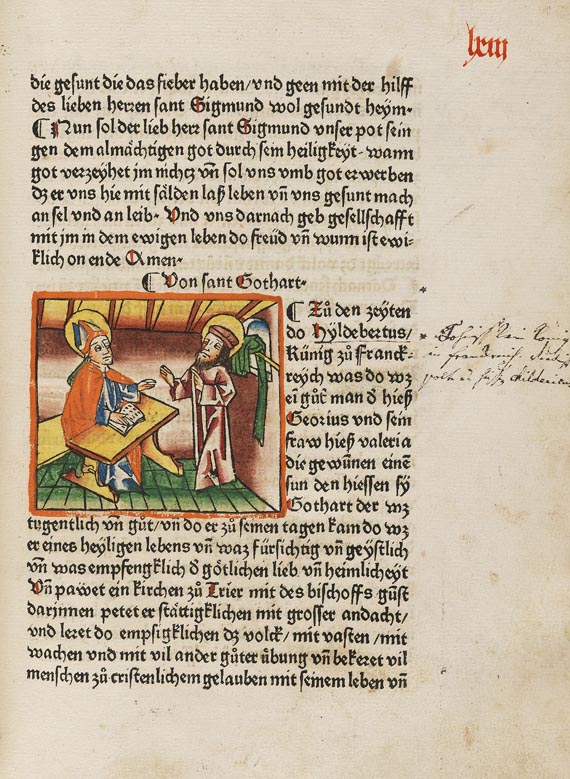 lxiii
die gesunt die das fieber haben/vnd geen mit der hilff
des lieben herꝛen sant Sigmund wol gesundt heym·
¶ Nun sol der lieb herꝛ sant Sigmund vnser pot sein
gen dem almächtigen got durch sein heiligkeyt· wann
got verzeyhet jm nichcz vñ sol vns vmb got erwerben
dz er vns hie mit sälden laß leben vñ vns gesunt mach
an sel vnd an leib· Vnd vns darnach geb gesellschafft
mit jm in dem ewigen leben do freüd vñ wunn ist ewi-
klich on ende Amen·
¶ Von sant Gothart·
¶ Zů den zeyten
do Hyldebertus/
Künig zů Franck-
reych was do wz
ei gůt man ð hieß
Georius vnd sein
fraw hieß valeria
die gewũnen einẽ
sun den hiessen sy
Gothart der wz
tugentlich vñ gůt/ vñ do er zů seinen tagen kam do wz
er eines heyligen lebens vñ waz fürsichtig vñ geystlich
vñ was empfengklich ð götlichen lieb vñ heimlicheyt
Vñ pawet ein kirchen zů Trier mit des bischoffs gůst
darjnnen petet er stättigklichen mit grosser andacht/
vnd leret do empsigklichen dz volck/ mit vasten /mit
wachen vnd mit vil ander gůter übung vñ bekeret vil
menschen zů cristenlichem gelauben mit seinem leben vñ